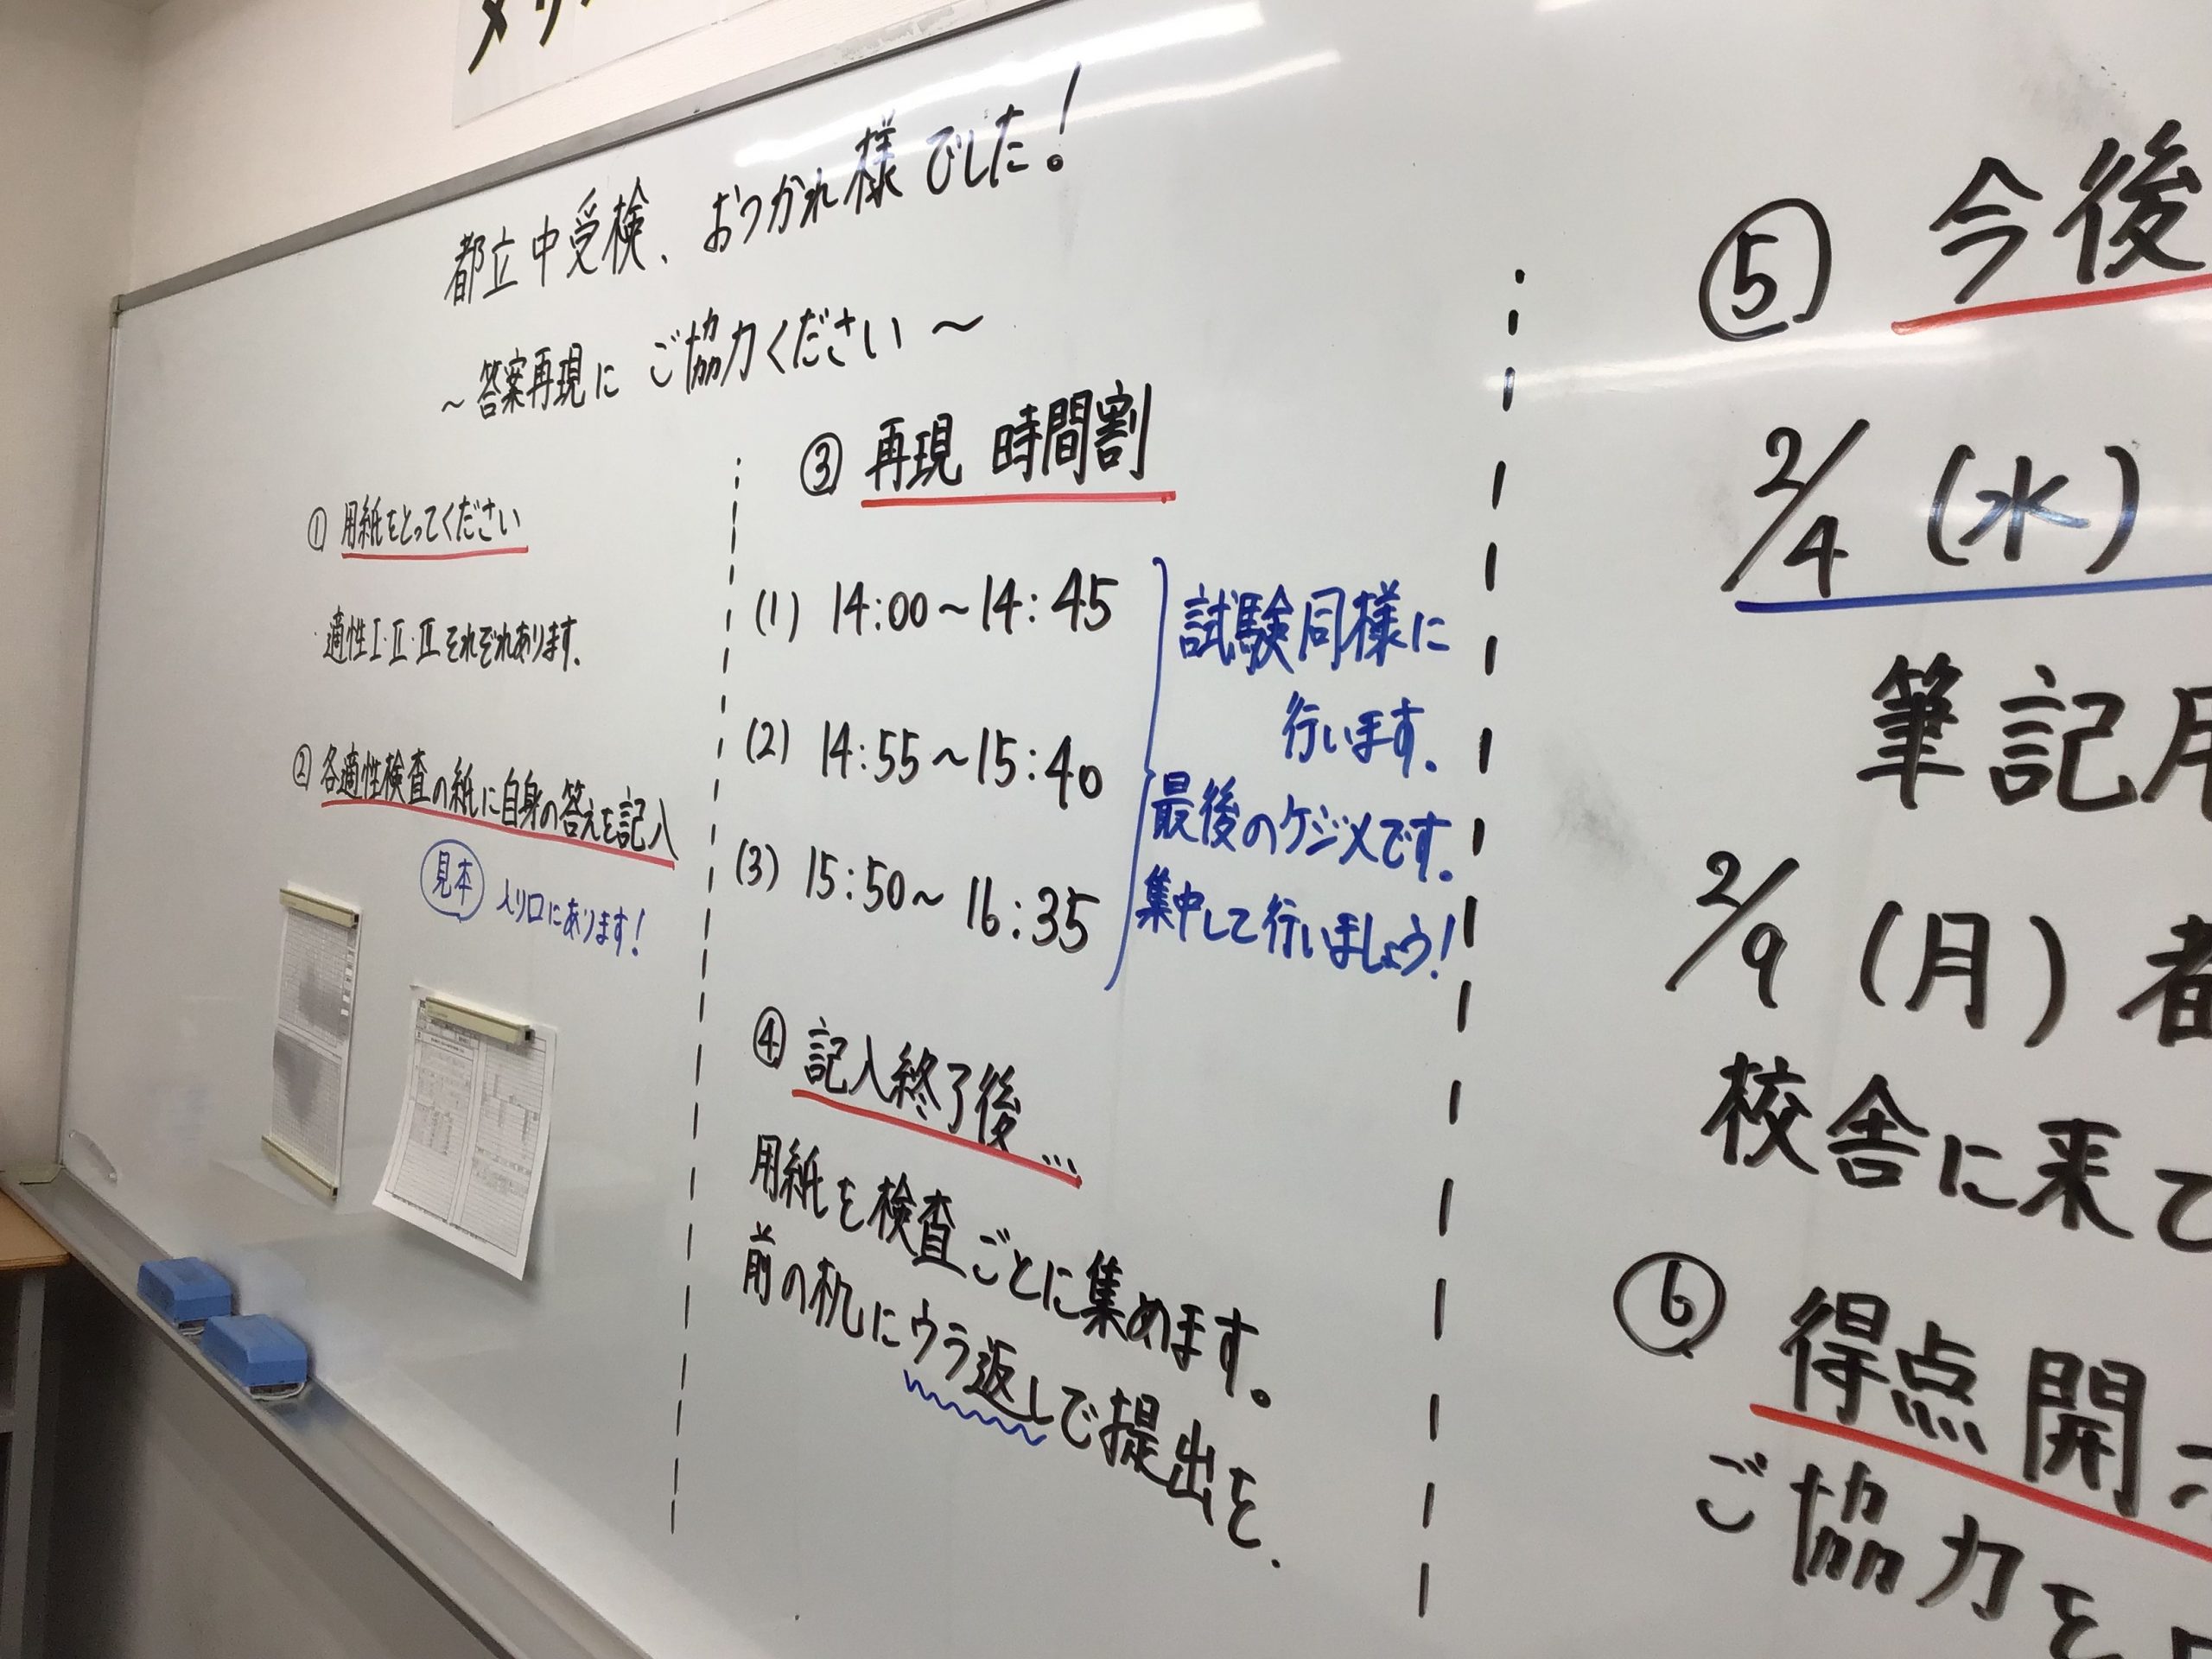 メリ
都立中受検、おつかれ様でした!
～答案再現にご協力ください～
① 用紙をとってください
・適性Ⅰ・Ⅱ・Ⅲそれぞれあります。
② 各適性検査の紙に自身の答えを記入
見本 入り口にあります!
③ 再現 時間割
(1) 14:00～14:45
(2) 14:55～15:40
(3) 15:50～16:35
試験同様に
行います。
最後のケジメです。
集中して行いましょう!
④ 記入終了後…
用紙を検査ごとに集めます。
前の机にウラ返しで提出を.
⑤ 今後
2/4 (水)
筆記用
2/9 (月) 都
校舎に来て
⑥ 得点開
ご協力を